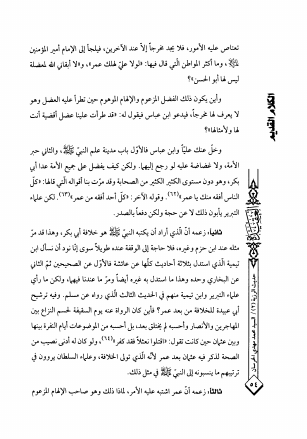 تعتاص عليه الأمور، فلا يجد مخرجاً إلاّ عند الآخرين، فيلجأ إلى الإمام أمير المؤمنين
، وما أكثر المواطن الّتي قال فيها: «لولا عليّ لهلك عمر»، و«لا أبقاني الله لمعضلة
ليس لها أبو الحسن»؟
وأين يكون ذلك الفضل المزعوم والإلهام الموهوم حين تطرأ عليه العضل وهو
لا يعرف لها مخرجاً، فيدعو ابن عباس فيقول له: «قد طرأت علينا عضل أقضية أنت
لها ولأمثالها»؟
وخلّ عنك عليّاً وابن عباس فالأوّل باب مدينة علم النبيّ ، والثاني حبر
الأمة، ولا غضاضة عليه لو رجع إليهما. ولكن كيف يفضل على جميع الأمة عدا أبي
بكر، وهو دون مستوى الكثير الكثير من الصحابة وقد مرّت بنا أقواله الّتي قالها: «كلّ
الناس أفقه منك يا عمر»(٦٢). وقوله الآخر: «كلّ أحد أفقه من عمر»(٦٣). لكن علماء
التبرير يأبون ذلك لا عن حجة ولكن دفعاً بالصدر.
ثانياً: زعمه أنّ الّذي أراد أن يكتبه النبيّ هو خلافة أبي بكر، وهذا قد مرّ
مثله عند ابن حزم وغيره، فلا حاجة إلى الوقفة عنده طويلاً سوى إنّا نود أن نسأل ابن
تيمية الّذي استدل بثلاثة أحاديث كلّها عن عائشة فالأوّل عن الصحيحين ثمّ الثاني
عن البخاري وحده وهذا ما استدل به غيره أيضاً ومرّ ما عندنا فيهما، ولكن ما رأي
علماء التبرير وابن تيمية منهم في الحديث الثالث الّذي رواه عن مسلم. وفيه ترشيح
أبي عبيدة للخلافة من بعد عمر؟ فأين كان الرواة عنه يوم السقيفة لحسم النزاع بين
المهاجرين والأنصار وأحسبه لم يختلق بعد، بل أحسبه من الموضوعات أيام النفرة بينها
وبين عثمان حين كانت تقول: «اقتلوا نعثلاً فقد كفر»(٦٤)، ولو كان له أدنى نصيب من
الصحة لذكر فيه عثمان بعد عمر لأنّه الّذي تولى الخلافة، وعلماء السلطان يروون في
ترتيبهم ما ينسبونه إلى النبيّ في مثل ذلك.
ثالثاً: زعمه أنّ عمر اشتبه عليه الأمر، لماذا ذلك وهو صاحب الإلهام المزعوم
الكلام القديم
٥٤